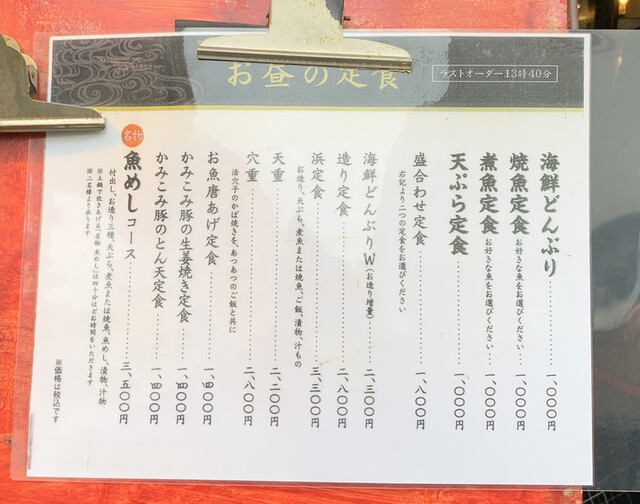 お昼の定食
ラストオーダー13時40分
海鮮どんぶり 一、〇〇〇円
焼魚定食 お好きな魚をお選びください 一、〇〇〇円
煮魚定食 お好きな魚をお選びください 一、〇〇〇円
天ぷら定食 一、〇〇〇円
盛合わせ定食 一、八〇〇円
右記より二つの定食をお選びください
海鮮どんぶりW（お造り増量） 二、三〇〇円
造り定食 二、八〇〇円
浜定食 三、三〇〇円
お造り、天ぷら、煮魚または焼魚、ご飯、漬物、汁もの
天重 二、二〇〇円
穴重 二、八〇〇円
活穴子のかば焼きを、あつあつのご飯と共に
お魚唐あげ定食 一、四〇〇円
かみこみ豚の生姜焼き定食 一、四〇〇円
かみこみ豚のとん天定食 一、四〇〇円
名物
魚めしコース 三、五〇〇円
付出し、お造り三種、天ぷら、煮魚または焼魚、魚めし、漬物、汁物
※土鍋で炊きあげる、「名物 魚めし」は四十分ほどお時間をいただきます
※二名様より承ります
※価格は税込です